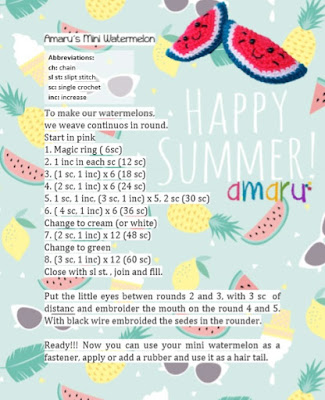 Amaru's Mini Watermelon
Abbreviations:
ch: chain
sl st: slipt stitch
sc: single crochet
inc: increase
To make our watermelons,
we weave continuos in round.
Start in pink
1. Magic ring ( 6sc)
2. 1 inc in each sc (12 sc)
3. (1 sc. 1 inc) x 6 (18 sc)
4. (2 sc. 1 inc) x 6 (24 sc)
5. 1 sc. 1 inc. (3 sc. 1 inc) x 5. 2 sc (30 sc)
6. ( 4 sc. 1 inc) x 6 (36 sc)
Change to cream (or white)
7. (2 sc. 1 inc) x 12 (48 sc)
Change to green
8. (3 sc. 1 inc) x 12 (60 sc)
Close with sl st. , join and fill.
HAPPY
SUMMER!
amaru
Put the little eyes betwen rounds 2 and 3, with 3 sc of
distanc and embroider the mouth on the round 4 and 5.
With black wire embroided the sedes in the rounder.
Ready!!! Now you can use your mini watermelon as a
fastener, apply or add a rubber and use it as a hair tail.